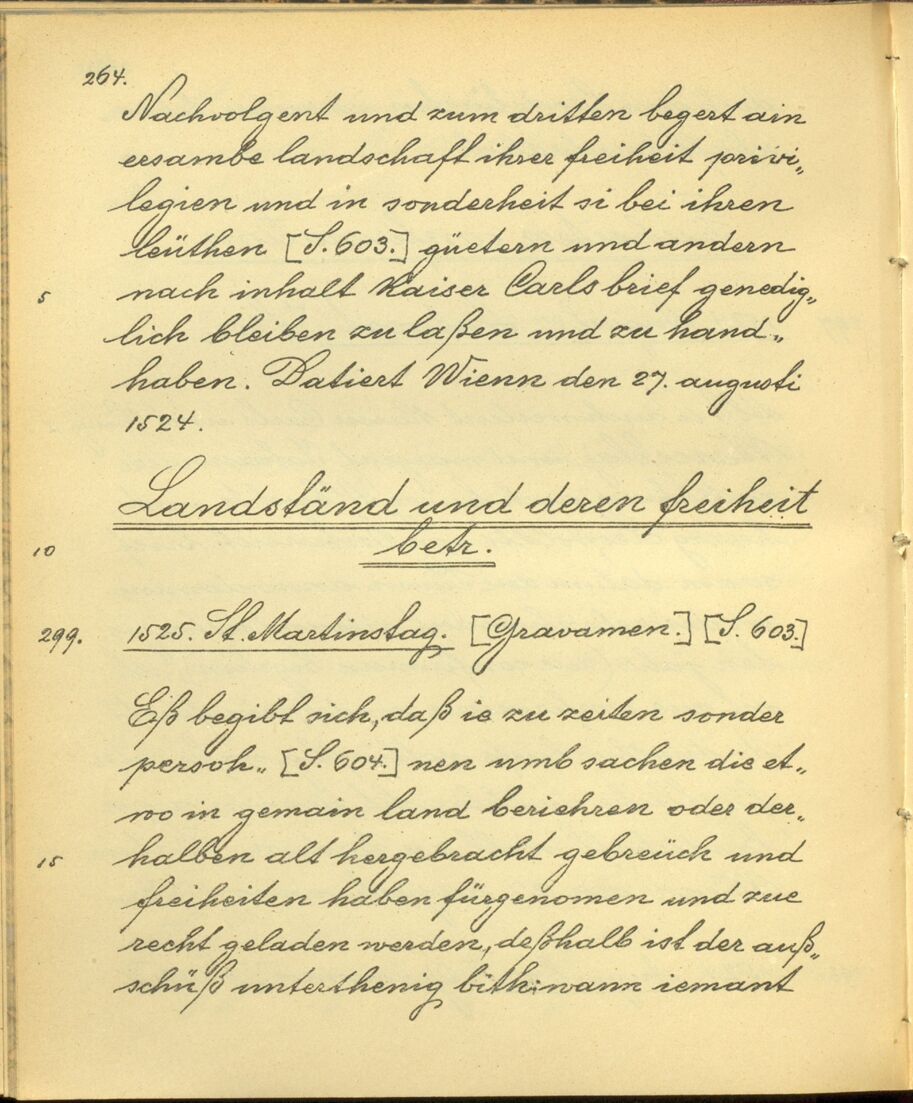 264.
Nachvolgent und zum dritten begert ain
ersambe landschaft ihrer freiheit privi„
legien und in sonderheit si bei ihren
leüthen [S. 603.] güetern und andern
5 nach inhalt Kaiser Carls brief genedig„
lich bleiben zu laßen und zu hand„
haben. Datiert Wienn den 27. augusti
1524.
Landständ und deren freiheit
10 betr.
299. 1525. St. Martinstag. [Gravamen.] [S. 603.]
Eß begibt sich, daß ie zu zeiten sonder
persoh„ [S. 604.] nen umb sachen die et„
wo in gemain land beriehren oder der„
15 halben alt hergebracht gebreüch und
freiheiten haben fürgenomen und zue
recht geladen werden, deßhalb ist der auß„
schüß unterthenig bith: wann iemant